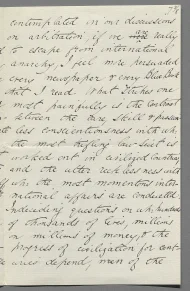 contemplated in our discussions
on arbitration, if we were really
to escape from international
anarchy, I feel more persuaded
every newspaper & every Blue Book
that I read. What strikes one
most painfully is the contrast
between the care, skill &
less conscientiousness with wh.
the most trifling law suit is
worked out in civilized countries
and the utter recklessness with
wh. the most momentous inter-
national affairs are conducted
Indeciding questions on wh. hundreds
of thousands of lives, millions
on millions of money, & the
progress of civilization for cent-
uries depend, men of the